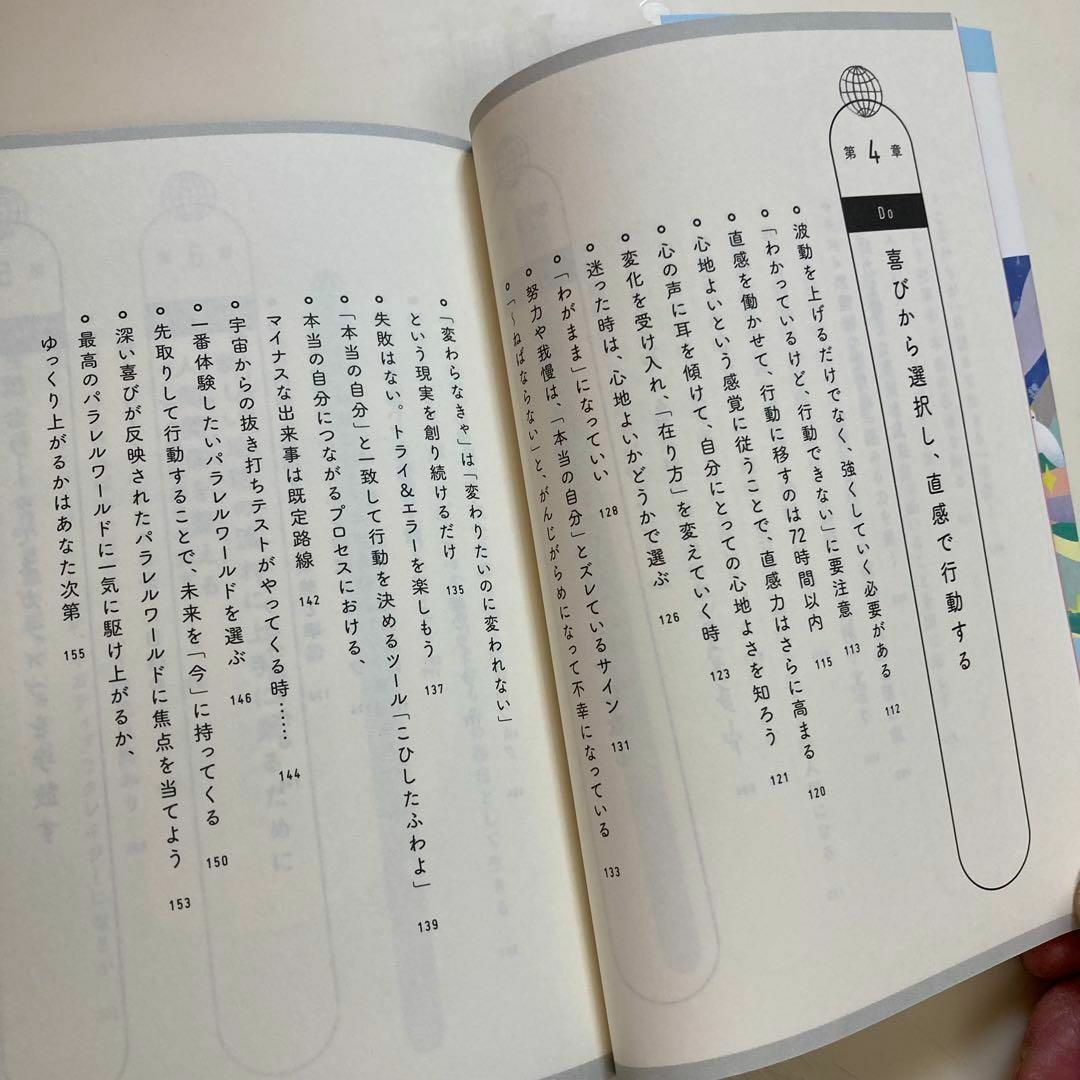 第4章
Do
喜びから選択し、直感で行動する
波動を上げるだけでなく、強くしていく必要がある 112
「わかっているけど、行動できない」に要注意 113
直感を働かせて、行動に移すのは72時間以内 115
心地よいという感覚に従うことで、直感力はさらに高まる 120
心の声に耳を傾けて、自分にとっての心地よさを知ろう 121
変化を受け入れ、「在り方」を変えていく時 123
迷った時は、心地よいかどうかで選ぶ 126
「わがまま」になっていい 128
努力や我慢は、「本当の自分」とズレているサイン 131
「〜ねばならない」と、がんじがらめになって不幸になっている 133
「変わらなきゃ」は「変わりたいのに変われない」
という現実を創り続けるだけ 135
失敗はない。トライ&エラーを楽しもう 137
「本当の自分」と一致して行動を決めるツール「こひしたふわよ」 139
本当の自分につながるプロセスにおける、
マイナスな出来事は既定路線 142
宇宙からの抜き打ちテストがやってくる時…… 144
一番体験したいパラレルワールドを選ぶ 146
先取りして行動することで、未来を「今」に持ってくる 150
深い喜びが反映されたパラレルワールドに焦点を当てよう 153
最高のパラレルワールドに一気に駆け上がるか、
ゆっくり上がるかはあなた次第 155